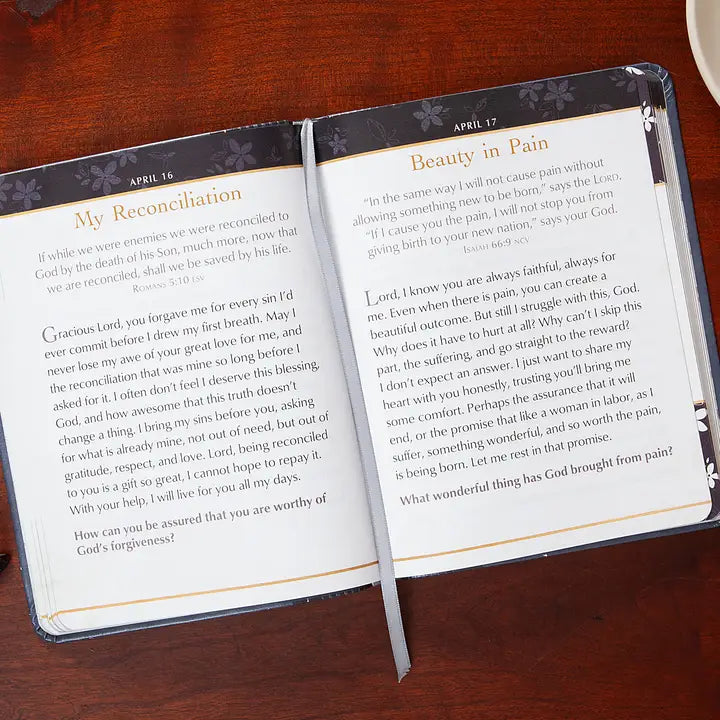 APRIL 16
My Reconciliation
If while we were enemies we were reconciled to
God by the death of his Son, much more, now that
we are reconciled, shall we be saved by his life.
Romans 5:10 ESV
Gracious Lord, you forgave me for every sin I'd
ever commit before I drew my first breath. May I
never lose my awe of your great love for me, and
the reconciliation that was mine so long before I
asked for it. I often don't feel I deserve this blessing,
God, and how awesome that this truth doesn't
change a thing. I bring my sins before you, asking
for what is already mine, not out of need, but out of
gratitude, respect, and love. Lord, being reconciled
to you is a gift so great, I cannot hope to repay it.
With your help, I will live for you all my days.
How can you be assured that you are worthy of
God's forgiveness?
APRIL 17
Beauty in Pain
“In the same way I will not cause pain without
allowing something new to be born,” says the LORD.
“If I cause you the pain, I will not stop you from
giving birth to your new nation,” says your God.
Isaiah 66:9 NCV
Lord, I know you are always faithful, always for
me. Even when there is pain, you can create a
beautiful outcome. But still I struggle with this, God.
Why does it have to hurt at all? Why can't I skip this
part, the suffering, and go straight to the reward?
I don't expect an answer. I just want to share my
heart with you honestly, trusting you'll bring me
some comfort. Perhaps the assurance that it will
end, or the promise that like a woman in labor, as I
suffer, something wonderful, and so worth the pain,
is being born. Let me rest in that promise.
What wonderful thing has God brought from pain?